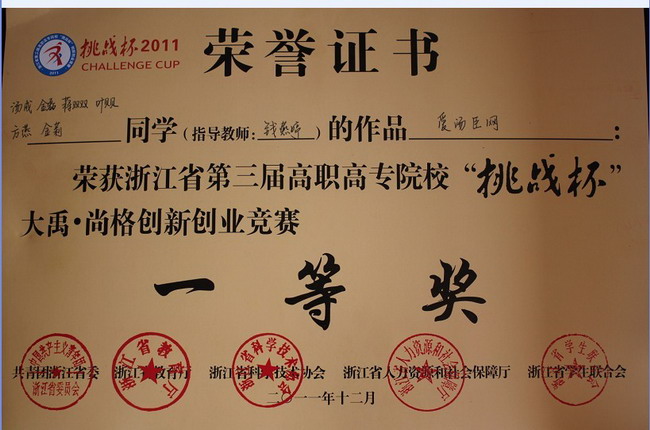 挑战杯2011
CHALLENGE CUP
荣誉证书
金鑫 蒋双双
方杰 金莉 同学(指导教师: 钱慧婷)的作品 爱汤臣网:
荣获浙江省第三届高职高专院校“挑战杯”
大禹·尚格创新创业竞赛
一等奖
共青团浙江省委 浙江省教育厅 浙江省科学技术协会 浙江省人力资源和社会保障厅 浙江省学生联合会
二〇一一年十二月